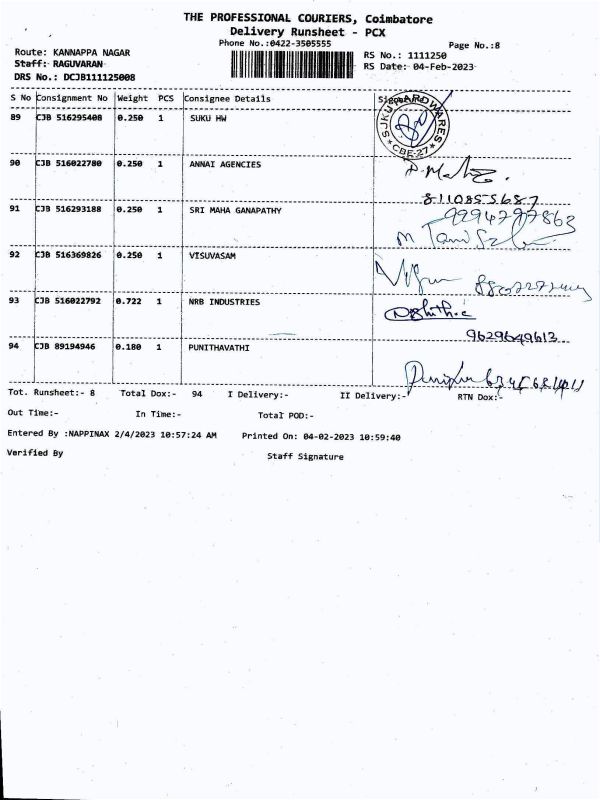 THE PROFESSIONAL COURIERS, Coimbatore
Delivery Runsheet - PCX
Phone No.:0422-3505555
Page No.:8
Route: KANNAPPA NAGAR
RS No.: 1111250
Staff: RAGUVARAN
RS Date: 04-Feb-2023
DRS No.: DCJB111125008
S No Consignment No Weight PCS Consignee Details
89 CJB 516295408 0.250 1 SUKU HW
CBE-27
90 CJB 516022780 0.250 1 ANNAI AGENCIES
8110855687
91 CJB 516293188 0.250 1 SRI MAHA GANAPATHY
9994797863
92 CJB 516369826 0.250 1 VISUVASAM
93 CJB 516022792 0.722 1 NRB INDUSTRIES
9629649613
94 CJB 89194946 0.180 1 PUNITHAVATHI
Tot. Runsheet:- 8 Total Dox:- 94 I Delivery:- II Delivery:- RTN Dox:-
Out Time:- In Time:- Total POD:-
Entered By :NAPPINAX 2/4/2023 10:57:24 AM Printed On: 04-02-2023 10:59:40
Verified By Staff Signature